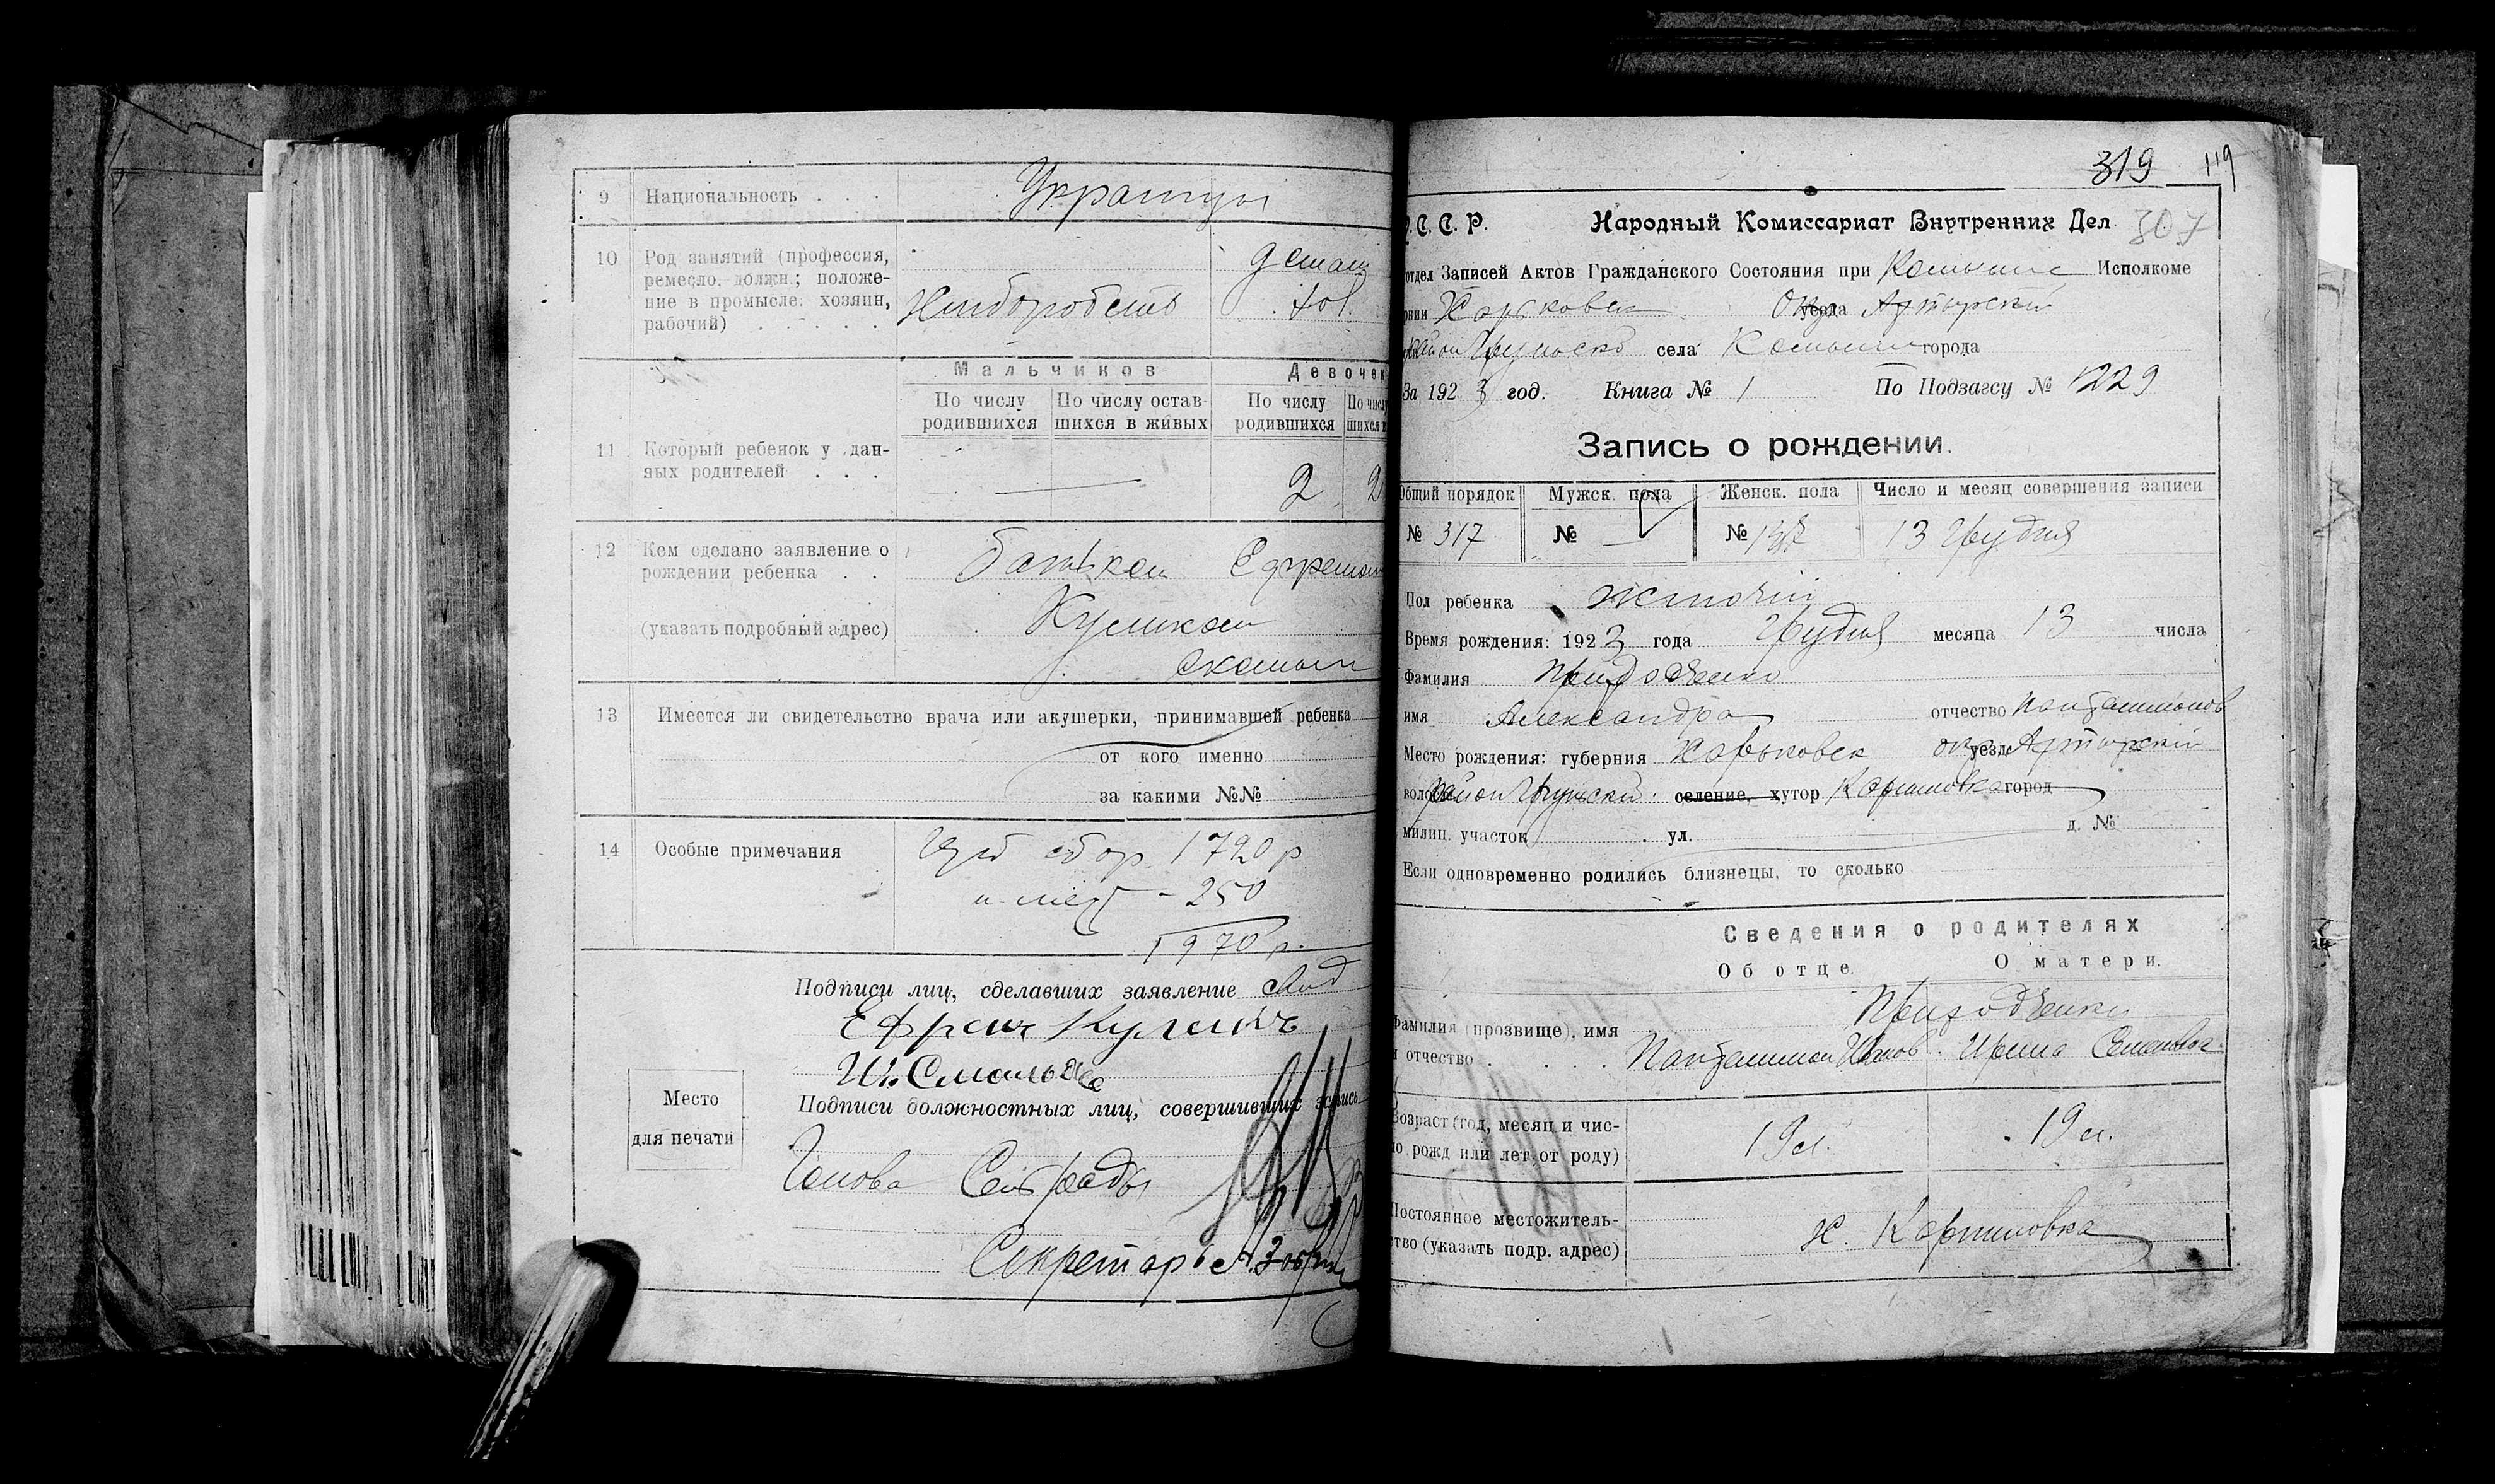 9 Национальность . . . Украинцы
10 Род занятий (профессия,
ремесло, должн.; положе-
ние в промысле: хозяин,
рабочий) . . . . . .
Хлiборобство
Мальчиков Девочек
По числу родившихся По числу оставшихся в живых По числу родившихся
11 Который ребенок у дан-
ных родителей . . .
— 2 2
12 Кем сделано заявление о
рождении ребенка . .
(указать подробный адрес)
батьком Ефремом
Куликом
13 Имеется ли свидетельство врача или акушерки, принимавшей ребенка
от кого именно
за какими №№
14 Особые примечания
сбор 1720 р
- 250
1970 р.
Подписи лиц, сделавших заявление
Ефрем Кулик
Подписи должностных лиц, совершивших запись
Место
для печати
Голова Сельради
Секретарь
319 119
307
С. С. Р. Народный Комиссариат Внутренних Дел
отдел Записей Актов Гражданского Состояния при Комыш Исполкоме
Харьковск Окр уезда Ахтырский
район Грунско села Комыши города
За 1923 год. Книга № 1 По Подзагсу № 1229
Запись о рождении.
Общий порядок Мужск. пола Женск. пола Число и месяц совершения записи
№ 317 № — № 13 Грудня
Пол ребенка жiночiй
Время рождения: 1923 года Грудня месяца 13 числа
Фамилия Приходченко
имя Александра отчество Пантелимонов
Место рождения: губерния Харьковск окр уезд Ахтырский
волость район Грунский селение, хутор город
милиц. участок ул. д. №
Если одновременно родились близнецы, то сколько
Сведения о родителях
Об отце. О матери.
Фамилия (прозвище), имя
и отчество . . . .
Приходченки
Пантелимон Иванов. Ирина Семеновна
Возраст (год, месяц и чис-
ло рожд или лет от роду)
19 л. 19 л.
Постоянное местожитель-
ство (указать подр. адрес)
х.